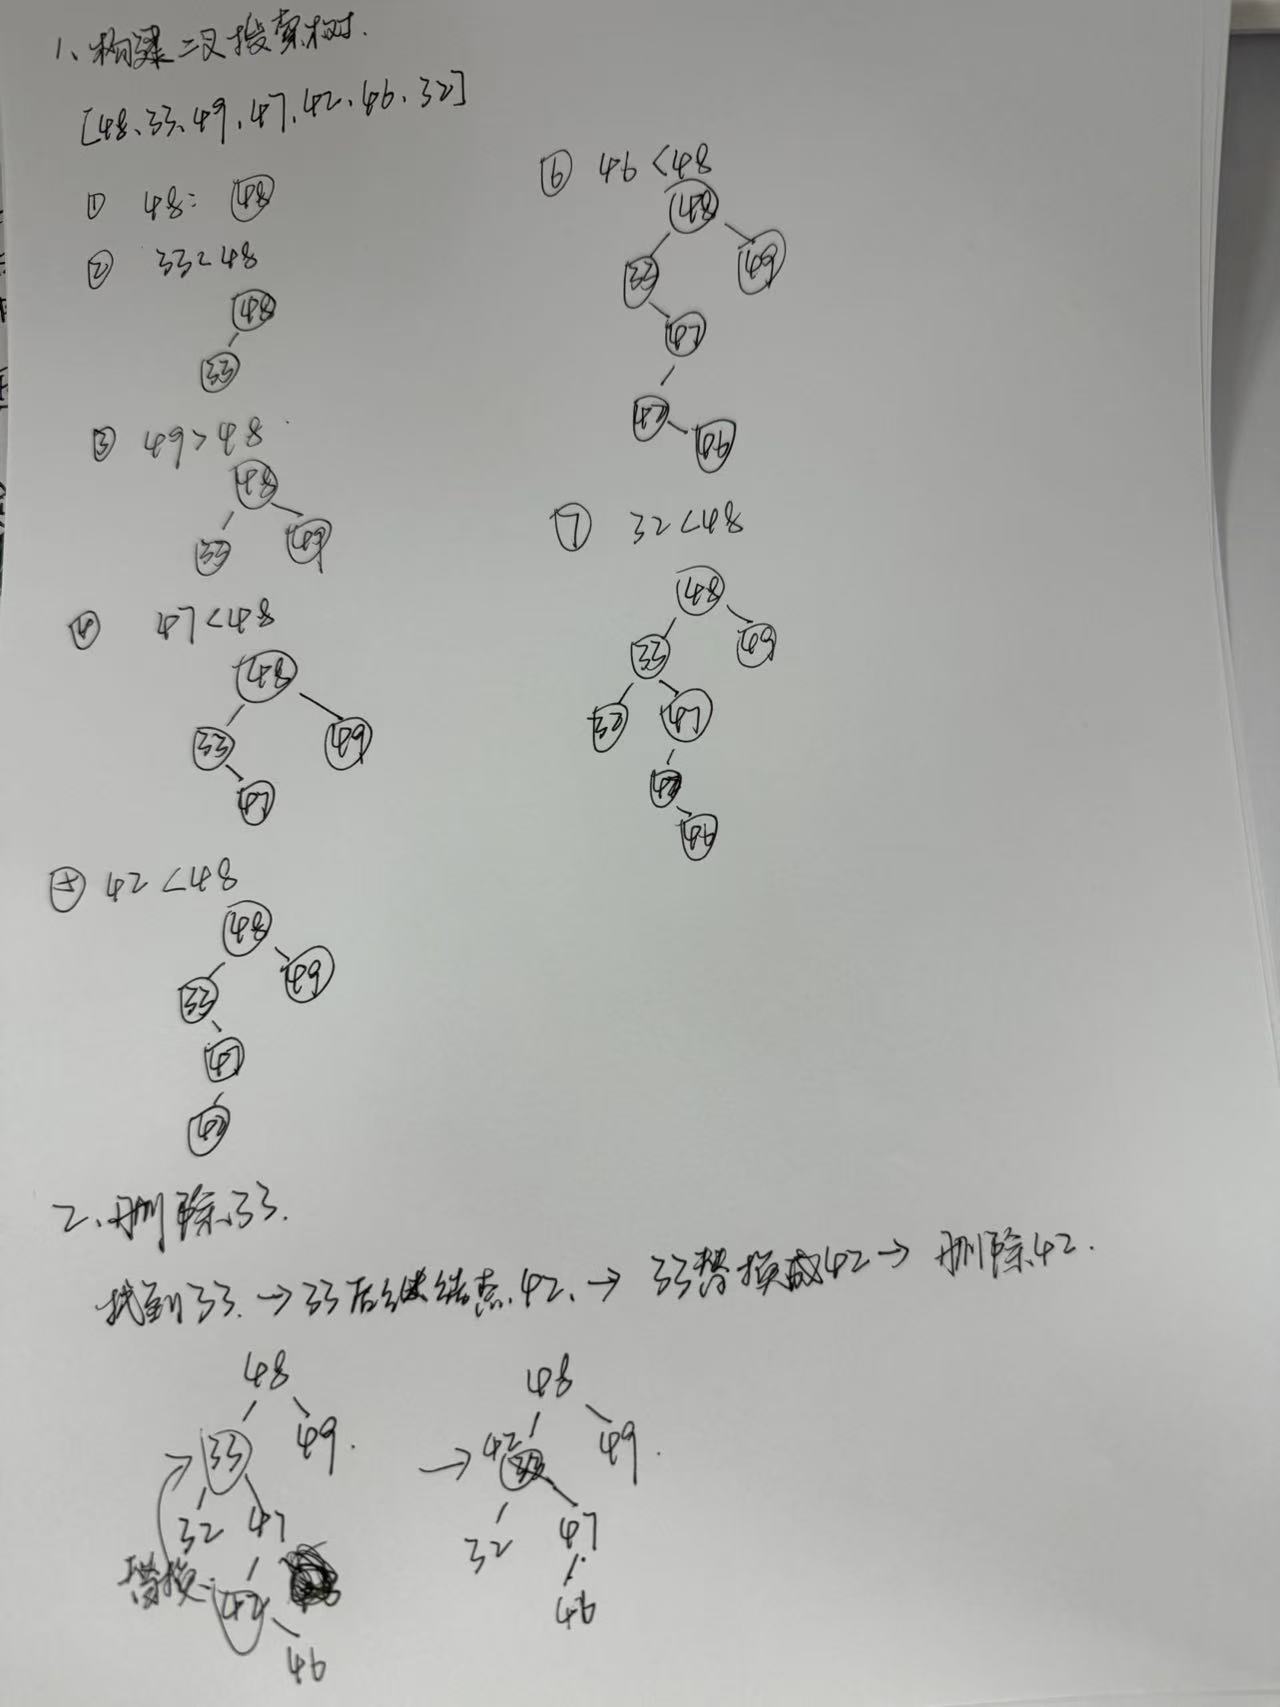 1、构建二叉搜索树.
[48、33、49、47、42、46、32]
① 48: 48
② 33<48
48
33
③ 49>48
48
33 49
④ 47<48
48
33 49
47
⑤ 42<48
48
33 49
47
42
⑥ 46<48
48
33 49
47
42 46
⑦ 32<48
48
33 49
32 47
42
46
2、删除33.
找到33.→33后继结点42、→33替换成42→删除42.
48
33 49.
32 47
替换
42
46
→
48
42 33 49.
32 47
46